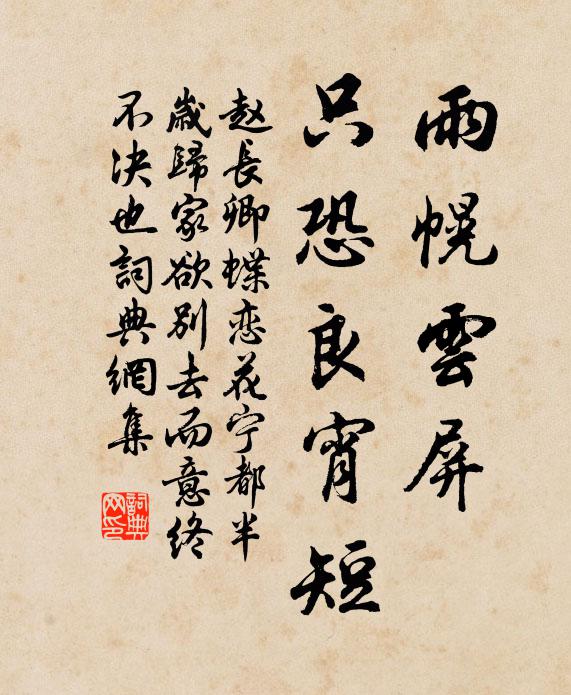 雨幌雲屏
只恐良宵短
赵長卿蝶恋花宁都半
歳歸家欲别去而意终
不决也詞典網集
詞典网印